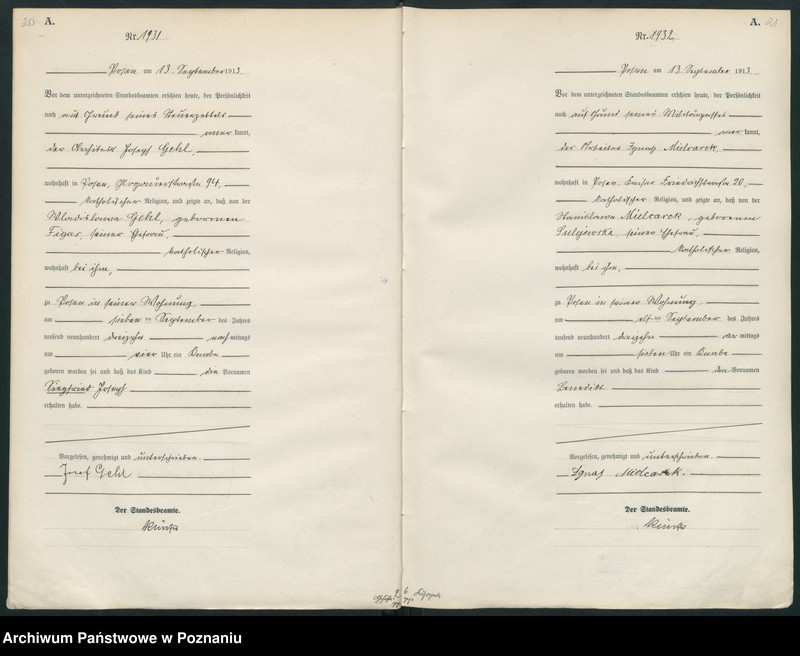 20 A.
Nr. 1931
Posen am 13. September 1913
Vor dem unterzeichneten Standesbeamten erschien heute, der Persönlichkeit
nach auf Grund seines Steuerzettels
aner kannt,
der Architekt Joseph Gehl,
wohnhaft in Posen, Glogauerstraße 94,
katholischer Religion, und zeigte an, daß von der
Wladislawa Gehl, geborenen
Figas, seiner Ehefrau,
katholischer Religion,
wohnhaft bei ihm,
zu Posen in seiner Wohnung
am sieben ten September des Jahres
tausend neunhundert dreizehn nach mittags
um vier Uhr ein Knabe
geboren worden sei und daß das Kind die Vornamen
Siegfried Joseph
erhalten habe.
Vorgelesen, genehmigt und unterschrieben
Josef Gehl
Der Standesbeamte.
A. 21
Nr. 1932
Posen am 13 September 1913
Vor dem unterzeichneten Standesbeamten erschien heute, der Persönlichkeit
nach auf Grund seines Militärpasses
aner kannt,
der Arbeiter Ignaz Mielcarek,
wohnhaft in Posen Kaiser Friedrichstraße 20,
katholischer Religion, und zeigte an, daß von der
Stanislawa Mielcarek, geborenen
seiner Ehefrau,
katholischer Religion,
wohnhaft bei ihm,
zu Posen in seiner Wohnung
am elf ten September des Jahres
tausend neunhundert dreizehn vor mittags
um sieben Uhr ein Knabe
geboren worden sei und daß das Kind den Vornamen
Benedikt
erhalten habe.
Vorgelesen, genehmigt und unterschrieben
Ignaz Mielcarek.
Der Standesbeamte.
Archiwum Państwowe w Poznaniu